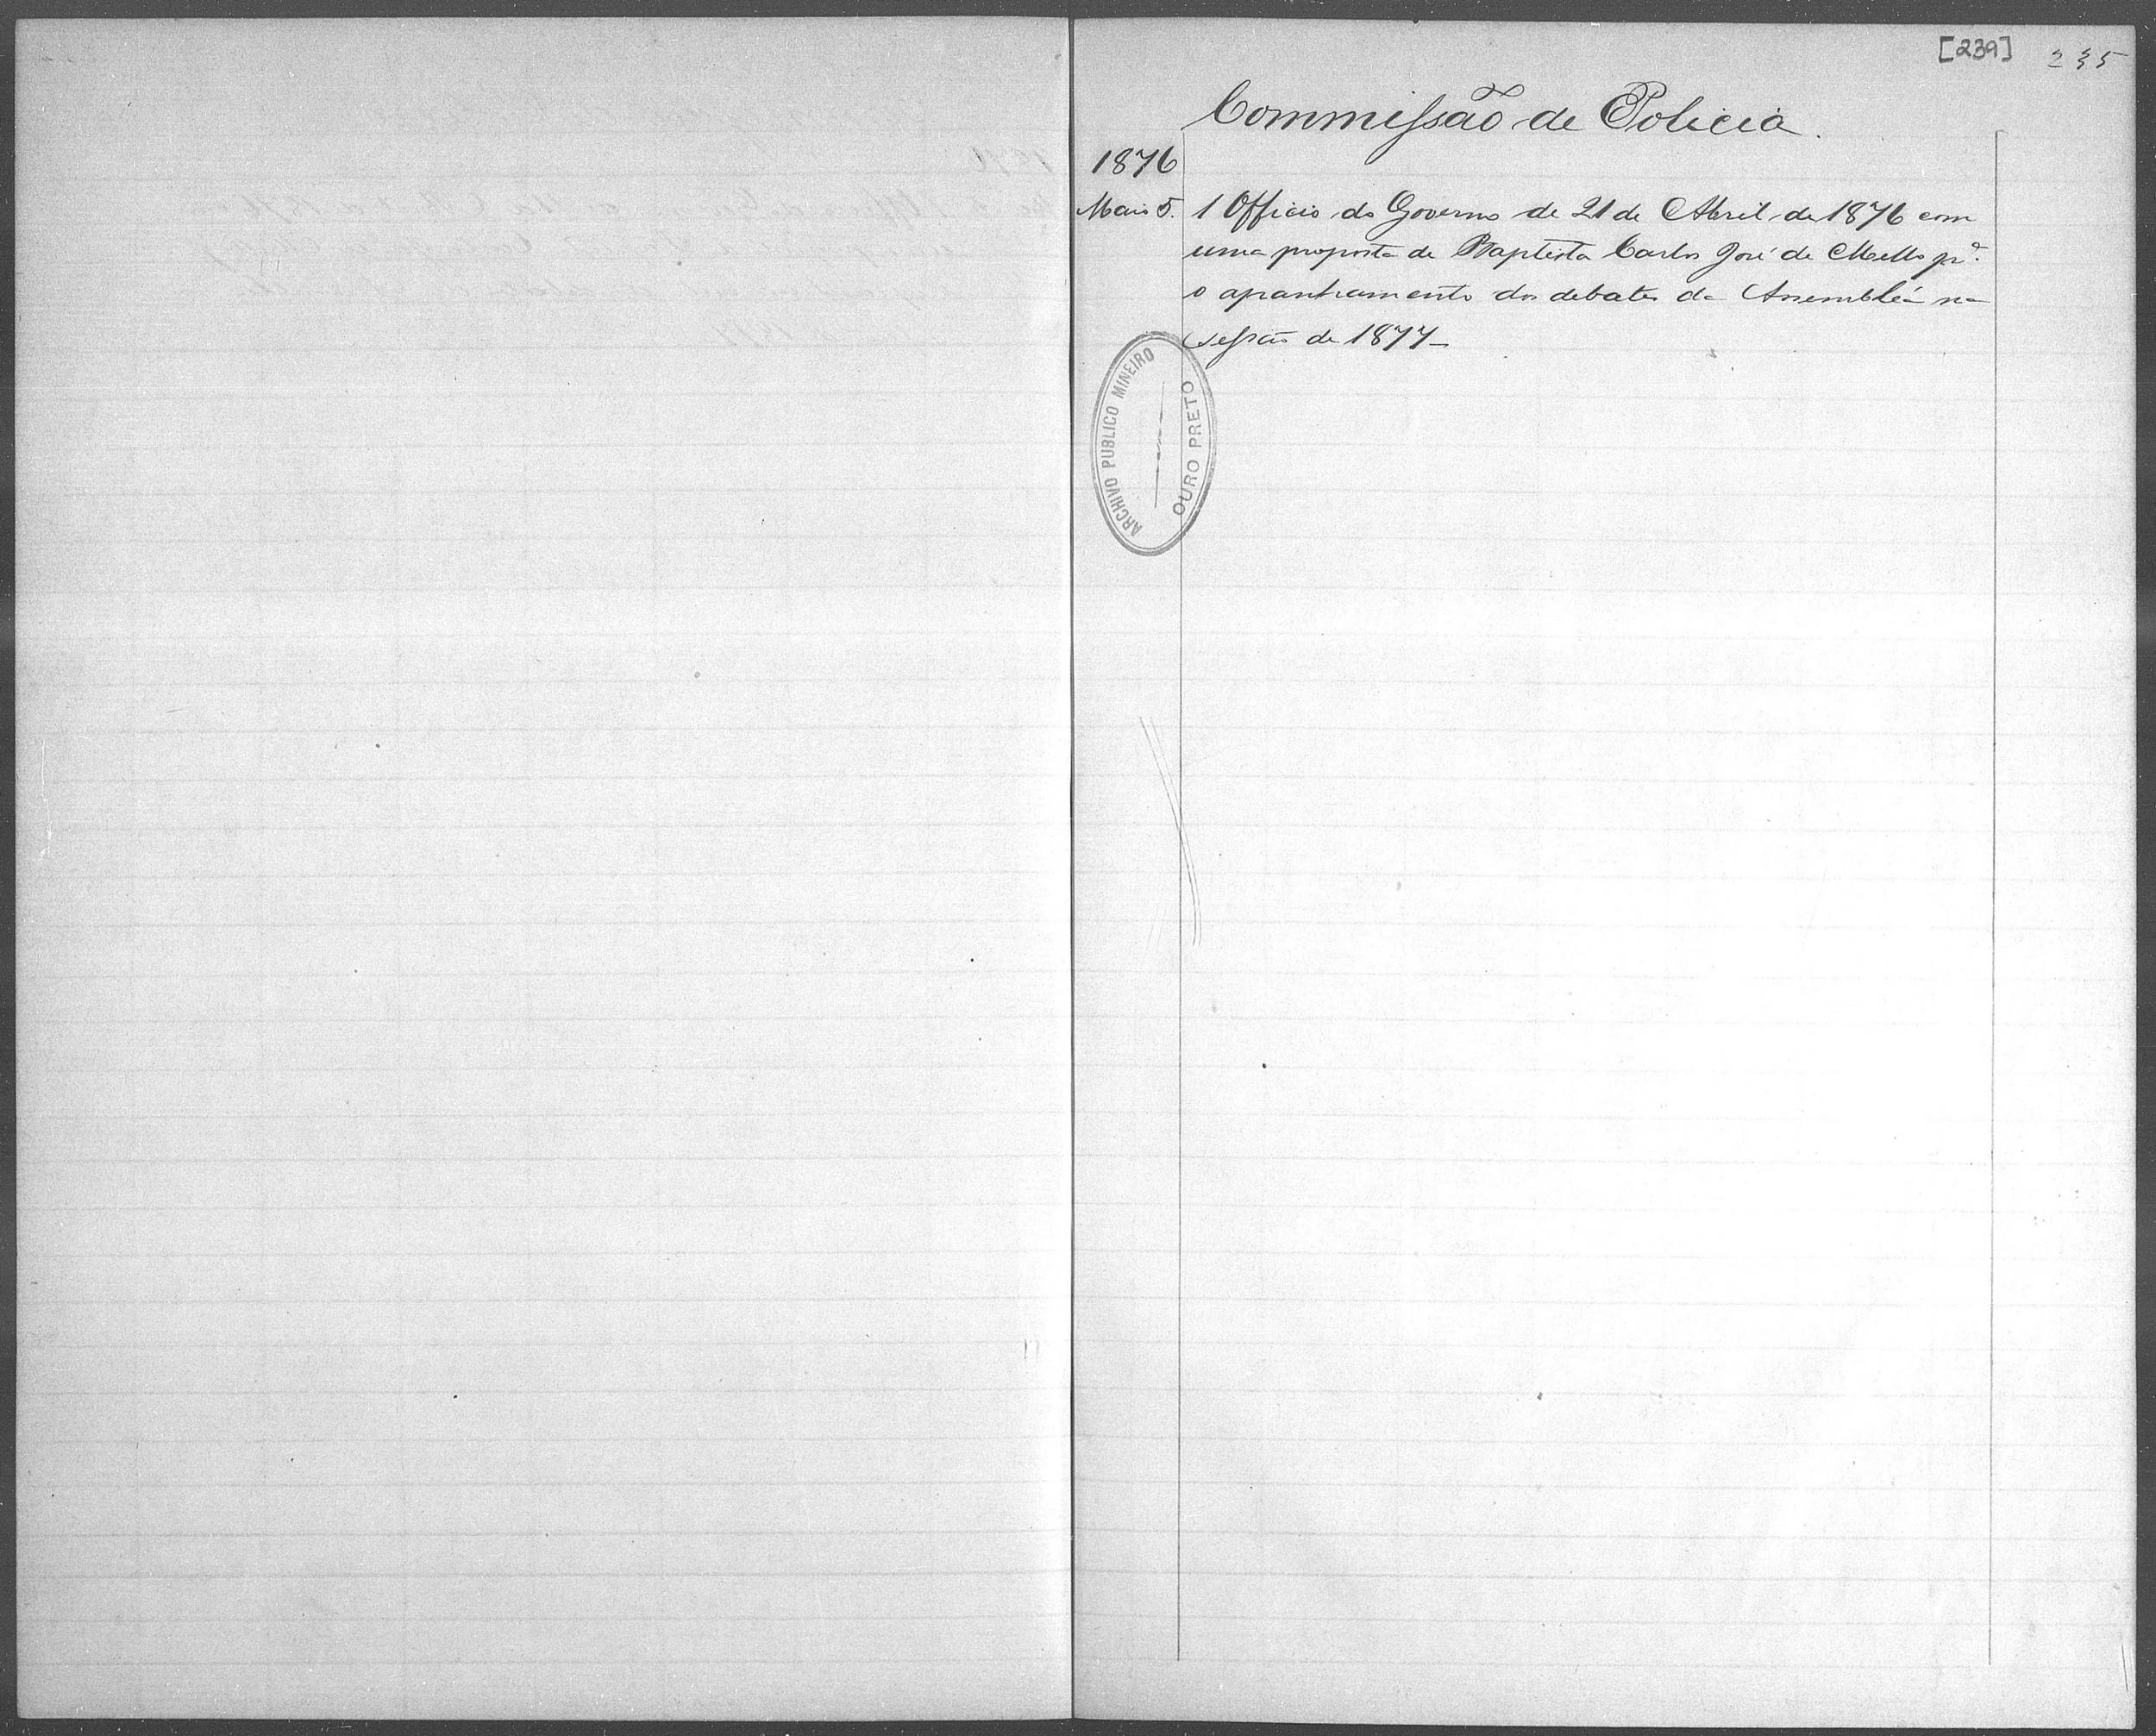 [239] 235
Commissão de Policia.
1876
Maio 5. 1 Officio do Governo de 21 de Abril de 1876 com
uma proposta de Baptista Carlos José de Mello pª.
o apanhamento dos debates da Assembléa na
sessão de 1877–
ARCHIVO PUBLICO MINEIRO
OURO PRETO